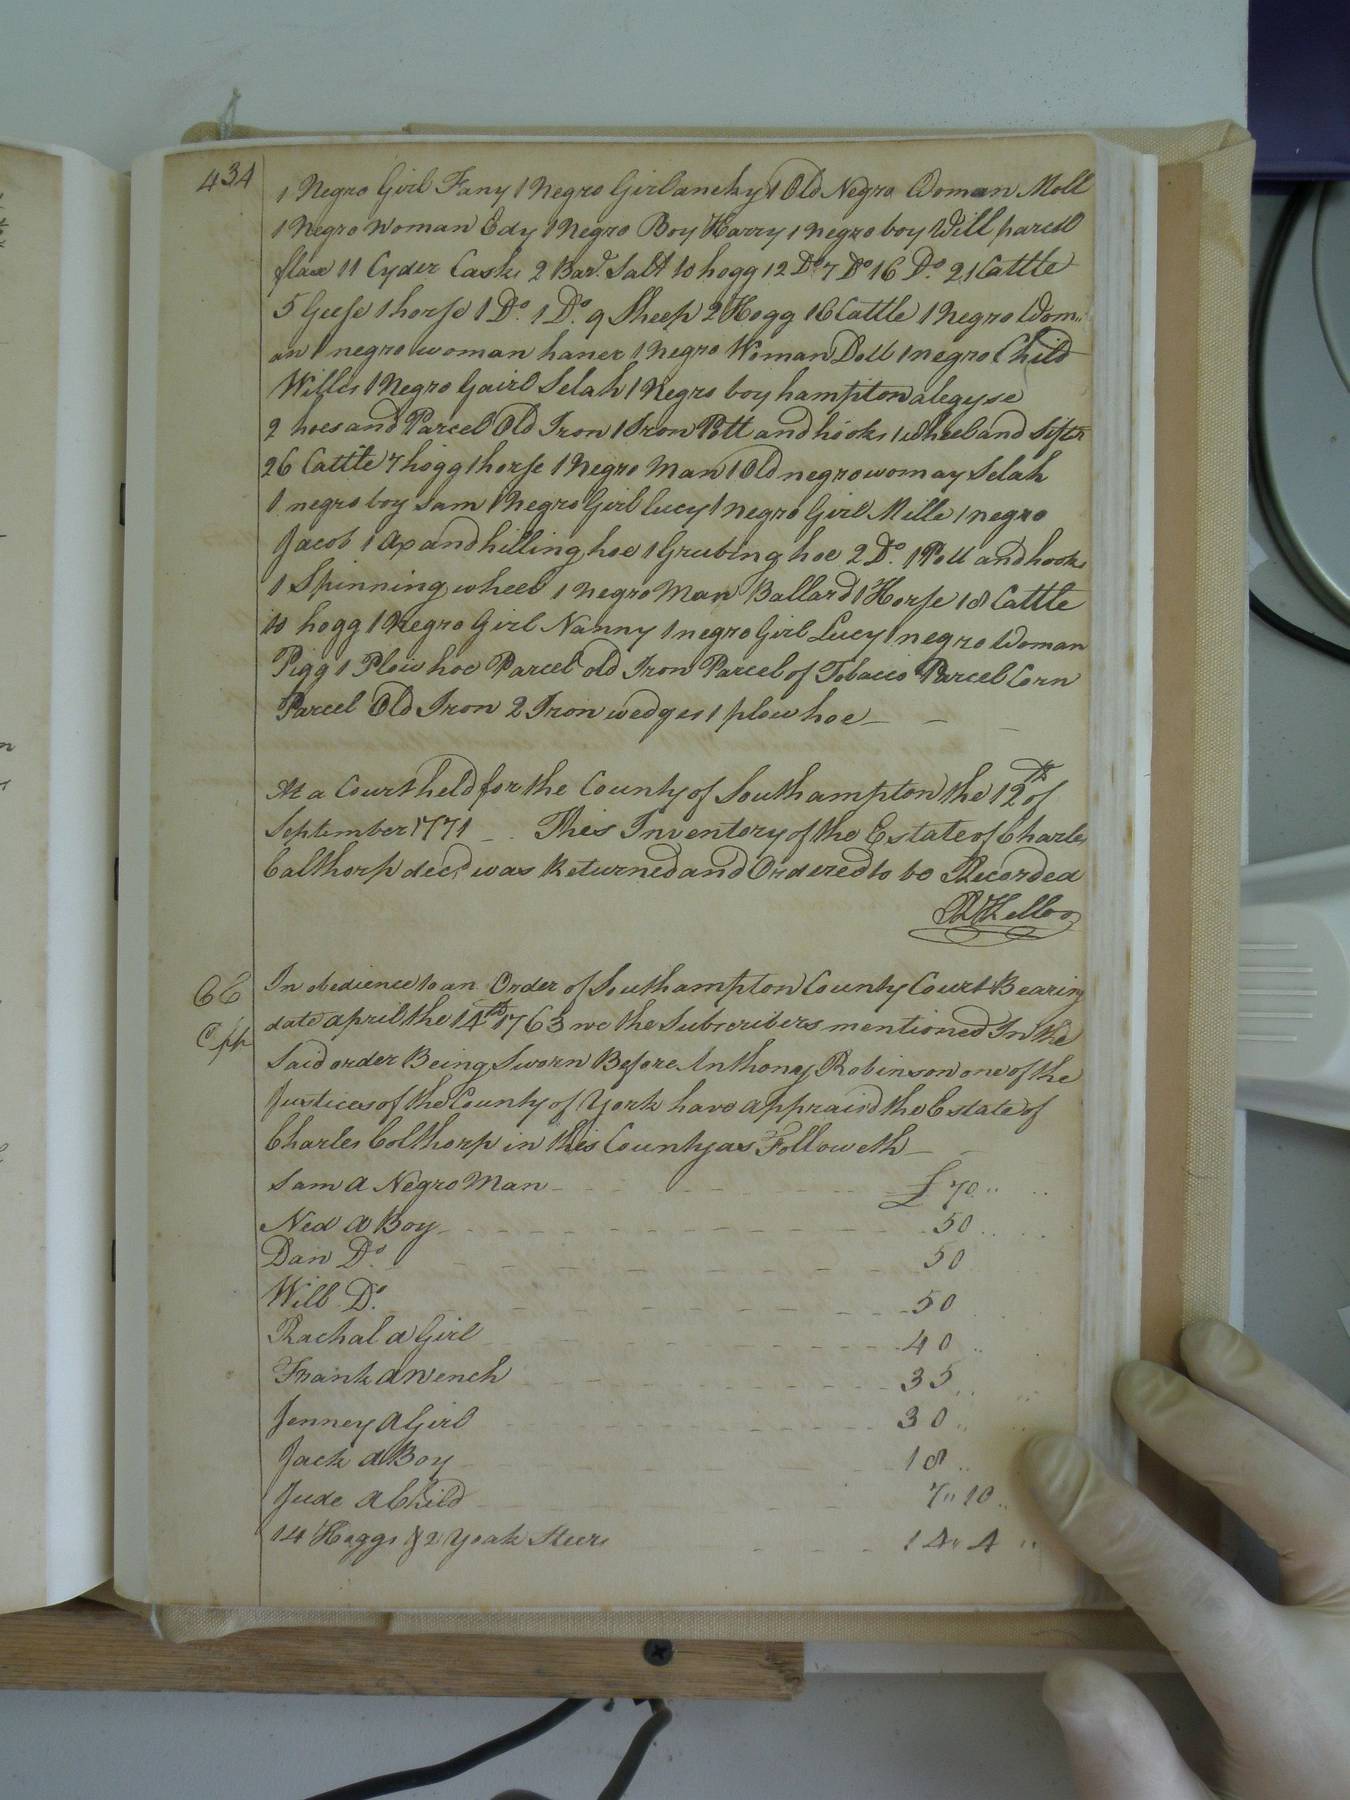 434
1 Negro Girl Fany 1 Negro Girl aneky 1 Old Negro Woman Moll
1 Negro Woman Edy 1 Negro Boy Harry 1 negro boy Will parcel
flax 11 Cyder Casks 2 Barr. Salt 10 hogg 12 Do 7 Do 16 Do. 21 Cattle
5 Geese 1 horse 1 Do. 1 Do. 9 Sheep 2 Hogg 16 Cattle 1 Negro Wom
an 1 negro woman haner 1 Negro Woman Doll 1 negro Child
Willis 1 Negro Gairl Selah 1 Negro boy hampton
2 hoes and Parcel Old Iron 1 Iron Pott and hooks 1 wheel and Sifter
26 Cattle 7 hogg 1 horse 1 Negro Man 1 Old negro womay Selah
1 negro boy Sam 1 Negro Girl Lucy 1 negro Girl Mille 1 negro
Jacob 1 Ax and hilling hoe 1 Grubing hoe 2 Do. 1 Pott and hooks
1 Spinning wheel 1 negro Man Ballard 1 Horse 18 Cattle
10 hogg 1 Negro Girl Nanny 1 negro Girl Lucy 1 negro Woman
Pigg 1 Plow hoe Parcel old Iron Parcel of Tobacco Parcel Corn
Parcel Old Iron 2 Iron wedges 1 plow hoe
At a Court held for the County of Southampton the 12th of
September 1771 This Inventory of the Estate of Charles
Calthorp decd. was Returned and Ordered to be Recorded
In obedience to an Order of Southampton County Court Bearing
date april the 14th 1763 we the Subscribers mentioned In the
Said order Being Sworn Before Anthony Robinson one of the
Justices of the County of York have appraisd the Estate of
Charles Colthorp in this County as Followeth
Sam a Negro Man £ 70
Ned a Boy 50
Dan Do. 50
Will Do. 50
Rachal a Girl 40
Frank a Wench 35
Jenney a Girl 30
Jack a Boy 18
Jude a Child 7 " 10
14 Hoggs & 2 Yoak Steers 14 " 4 "